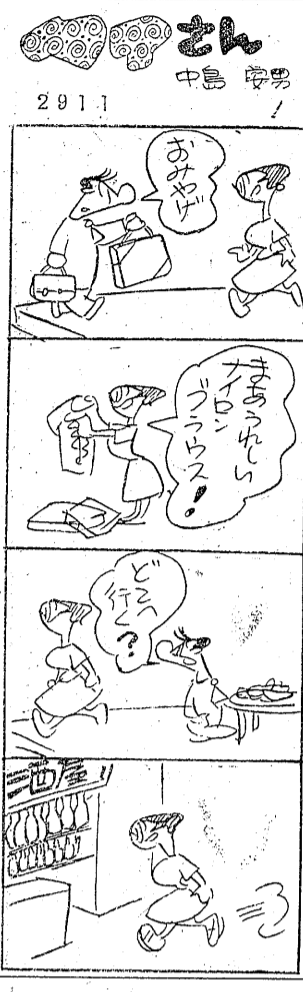 さん
中島 安男
2911
おみやげ
まあうれしい
ナイロン
ブラウス!
どこへ
行く?